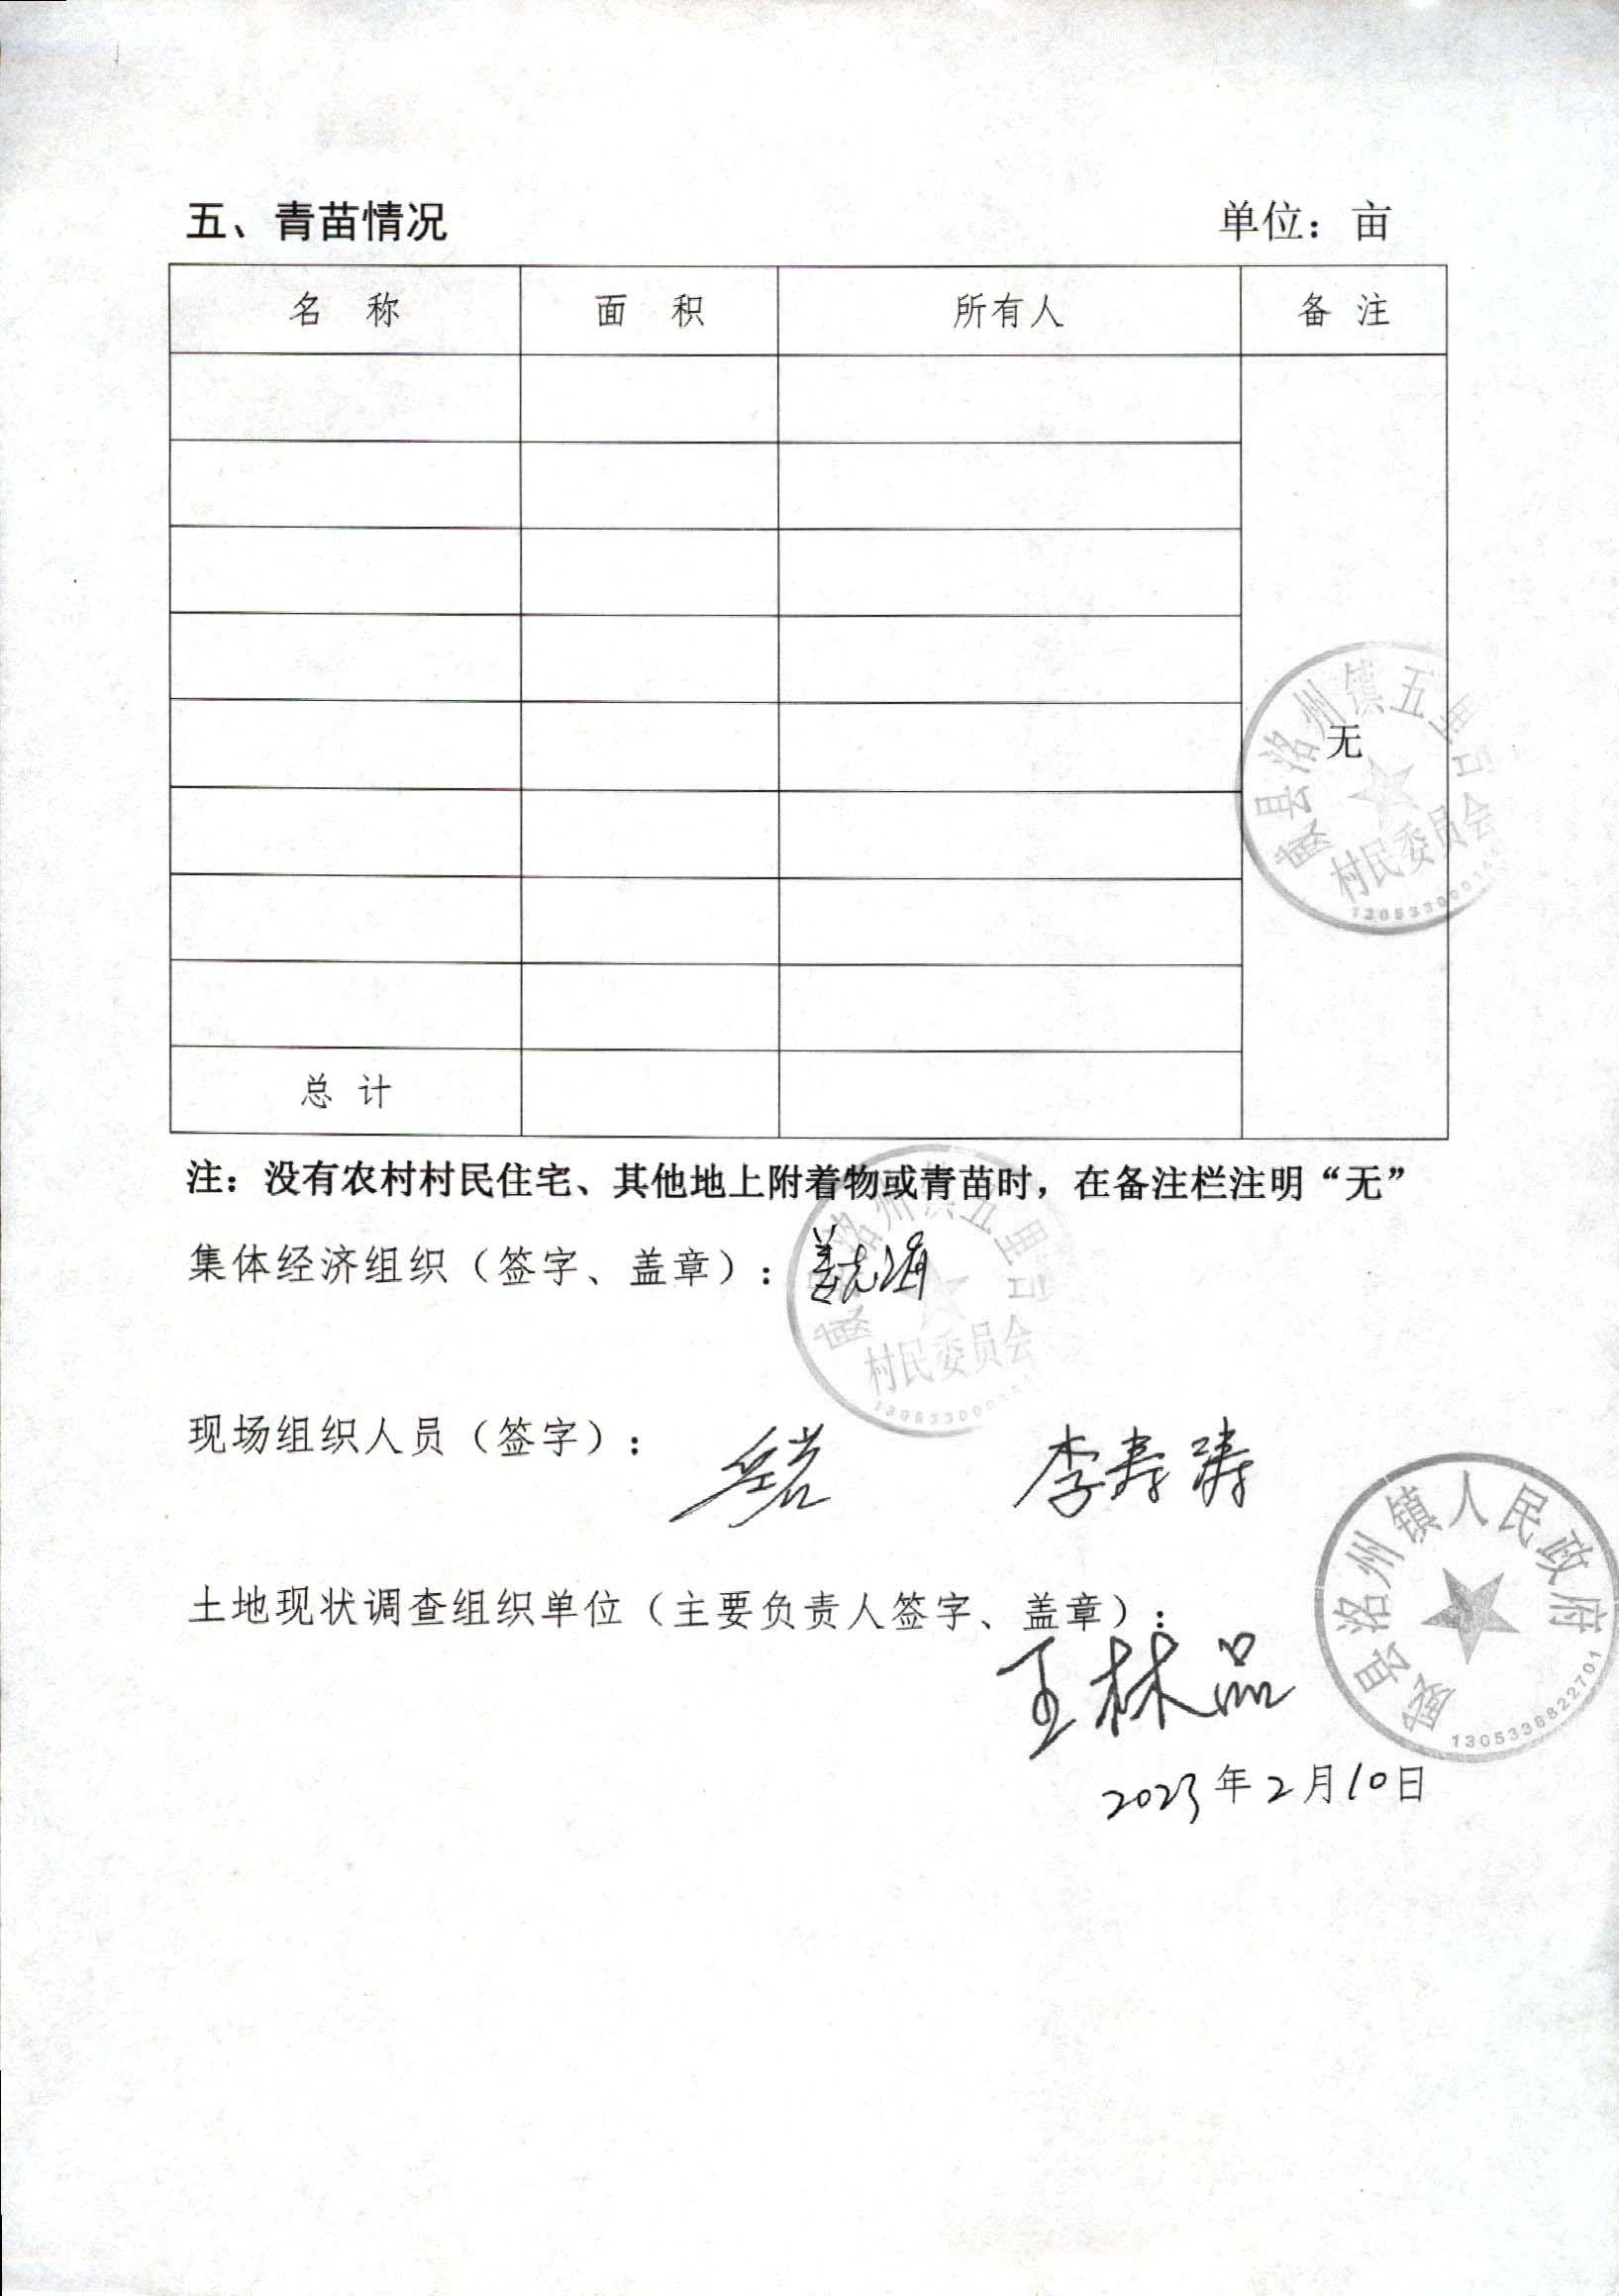 五、青苗情况 单位：亩
名 称 面 积 所有人 备 注
无
总 计
威县洺州镇五里台
村民委员会
注：没有农村村民住宅、其他地上附着物或青苗时，在备注栏注明“无”
集体经济组织（签字、盖章）：
威县洺州镇五里台
村民委员会
现场组织人员（签字）： 李寿涛
土地现状调查组织单位（主要负责人签字、盖章）：
王林品
威县洺州镇人民政府
1305338822701
2023年2月10日